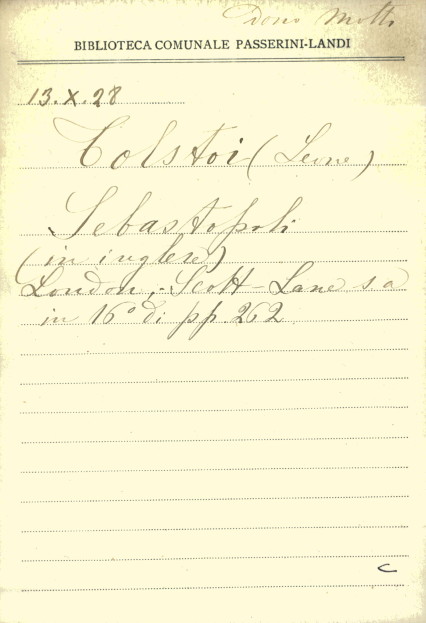 Dono Motti
BIBLIOTECA COMUNALE PASSERINI-LANDI
13.X.28
Tolstoi (Leone)
Sebastopoli
(in inglese)
London, Scott-Lane s a
in 16° di pp. 262
C